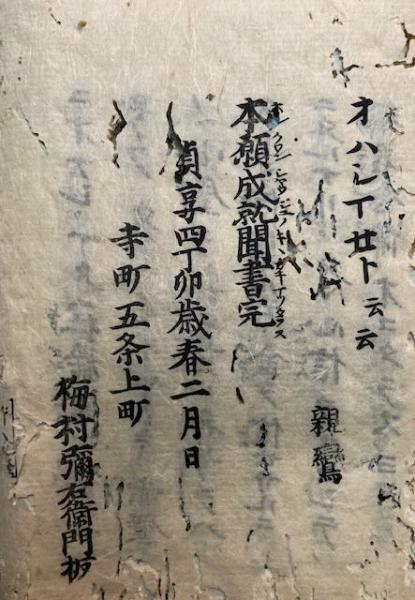 オハシマサト云云
親鸞
本願成就聞書完
貞享四丁卯歳春二月日
寺町五条上町
梅村彌右衛門板